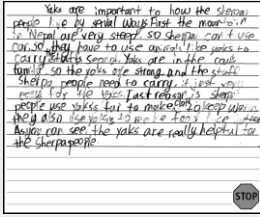 Yaks are important to how the sherpa
people live by serval ways. First the mountain
Nepal are very steep. so sherpa can't use
car. so they have to use animals like yaks to
carry Yaks are in the cows
family. so the yaks are strong. and the stuff
sherpa people need to carry, it just very
easy for the yaks. Last reason is sherpa
people use yaks fur to make to keep warm
they also use yaks to make food like
As you can see, the yaks are really helpful for
the sherpa people.
STOP